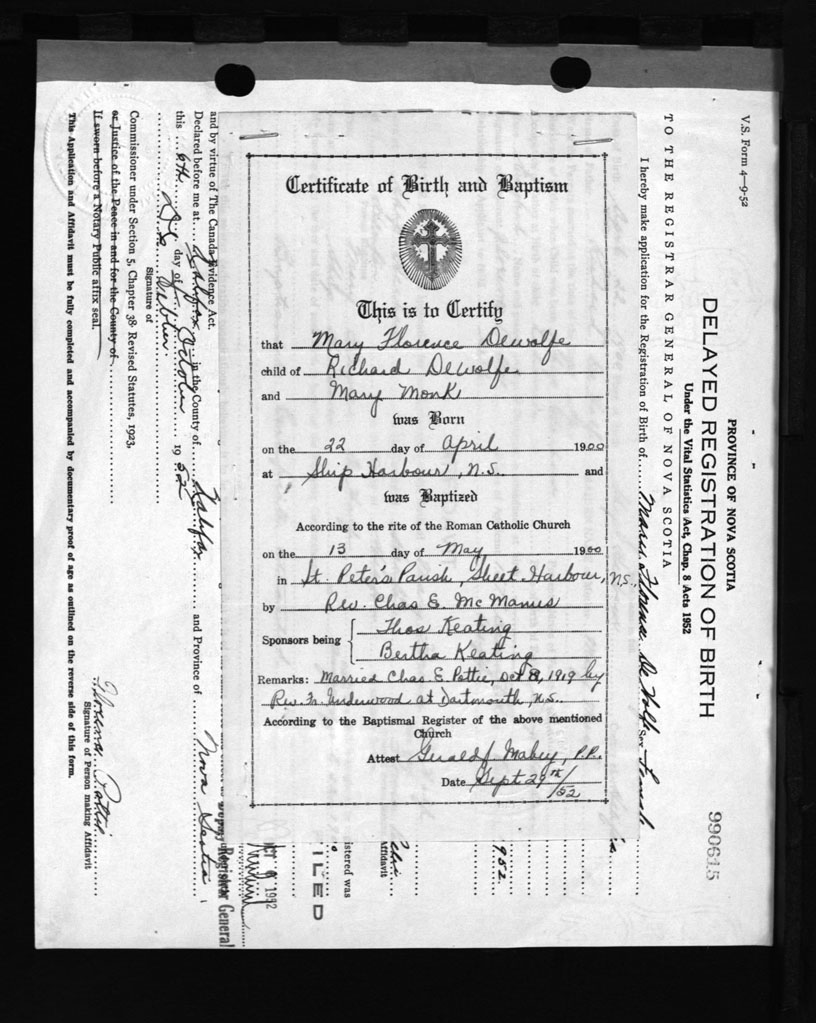 Certificate of Birth and Baptism
This is to Certify
that Mary Florence DeWolfe
child of Richard DeWolfe
and Mary Monk
was Born
on the 22 day of April 1900
at Ship Harbour, N.S. and
was Baptized
According to the rite of the Roman Catholic Church
on the 13 day of May 1900
in St. Peter's Parish, Sheet Harbour, N.S.
by Rev. Chas E. McManus
Sponsors being Thos Keating
Bertha Keating
Remarks: Married Chas E. Pettie, Oct 8, 1919 by
Rev. Fr. Underwood at Dartmouth, N.S.
According to the Baptismal Register of the above mentioned
Church
Attest Gerald Mabey, P.P.
Date Sept 29th/52
V.S. Form 4—9-52
PROVINCE OF NOVA SCOTIA
DELAYED REGISTRATION OF BIRTH
Under the Vital Statistics Act, Chap. 8 Acts 1952
990615
TO THE REGISTRAR GENERAL OF NOVA SCOTIA
I hereby make application for the Registration of Birth of Mary Florence De Wolfe Sex Female
1952
Affidavit
istered was
ILED
OCT 9 1952
Deputy Registrar General
and by virtue of The Canada Evidence Act.
Declared before me at Halifax in the County of Halifax and Province of Nova Scotia
this 6th day of October 1952
Signature of
Commissioner under Section 5, Chapter 38 Revised Statutes, 1923,
or Justice of the Peace in and for the County of
If sworn before a Notary Public affix seal.
Florence Pettie
Signature of Person making Affidavit
This Application and Affidavit must be fully completed and accompanied by documentary proof of age as outlined on the reverse side of this form.